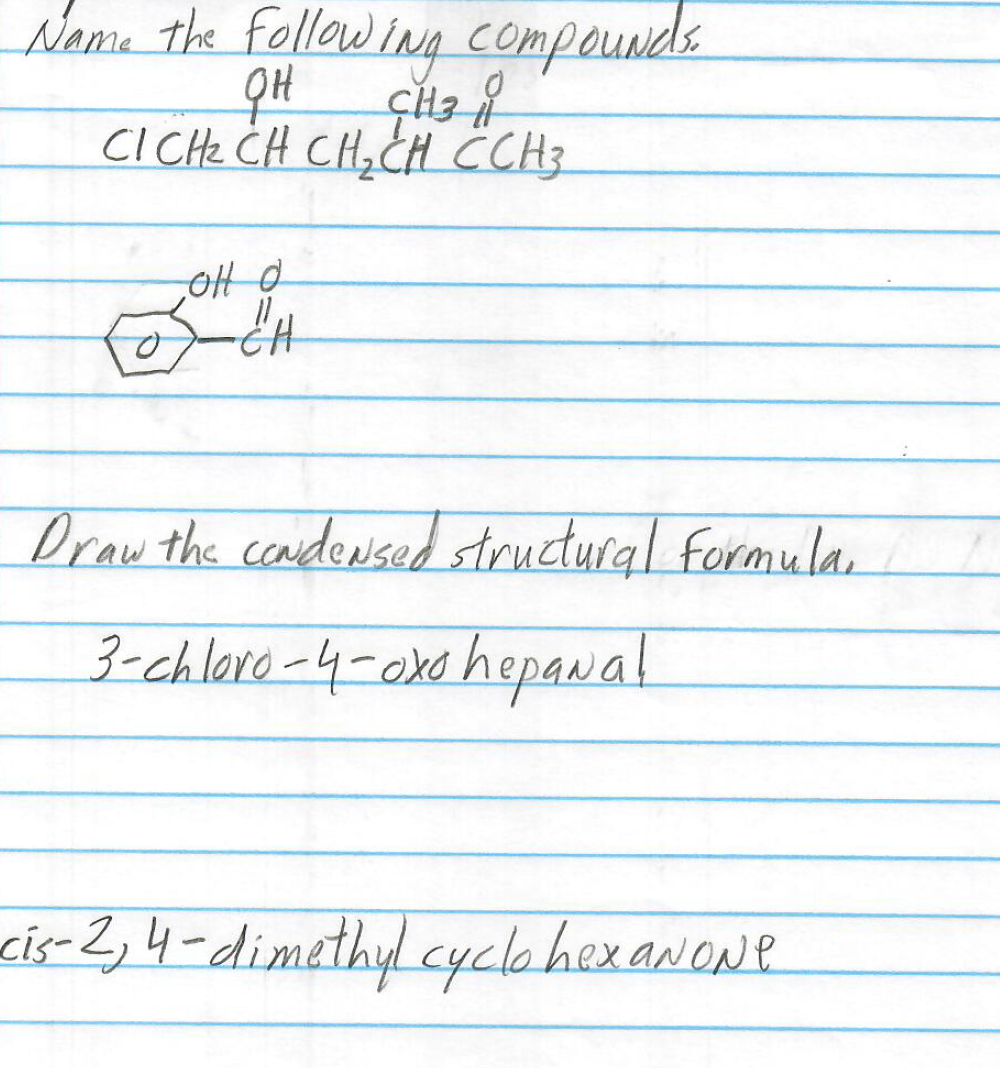 Name the following compounds.
OH CH3 O
ClCH2 CH CH2CH CCH3
OH O
CH
Draw the condensed structural formula.
3-chloro-4-oxohepanal
cis-2,4-dimethyl cyclohexanone